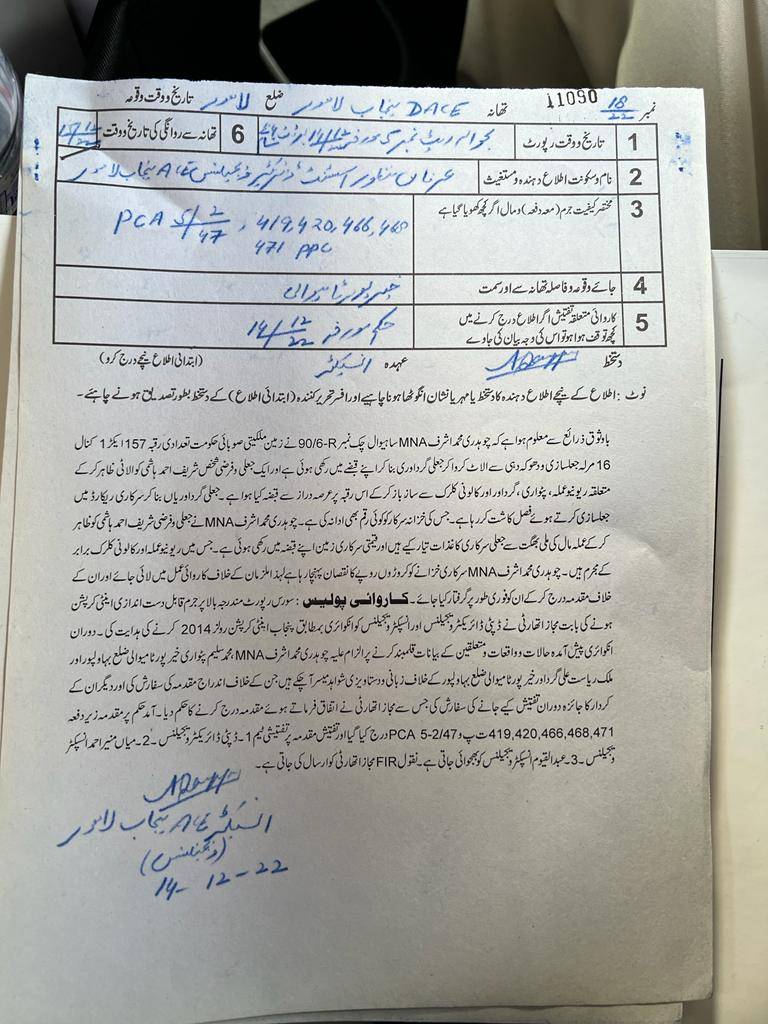 نمبر 18/22 11090 تھانہ DACE پنجاب لاہور ضلع لاہور تاریخ و وقت وقوعہ
1 تاریخ و وقت رپورٹ بحوالہ رپٹ نمبر 5 مورخہ 14/12/22
6 تھانہ سے روانگی کی تاریخ و وقت
2 نام و سکونت اطلاع دہندہ و مستغیث اسسٹنٹ ڈائریکٹر ویجیلنس ACE پنجاب لاہور
3 مختصر کیفیت جرم (معہ دفعہ) و مال اگر کچھ کھویا گیا ہے PCA 5/2/47 , 419,420,466,468
471 PPC
4 جائے وقوعہ و فاصلہ تھانہ سے اور سمت خیرپورٹامیوالی
5 کاروائی متعلقہ تفتیش اگر اطلاع درج کرنے میں
کچھ توقف ہوا ہو تو اس کی وجہ بیان کی جاوے حکم مورخہ 14/12/22
دستخط عہدہ انسپکٹر (ابتدائی اطلاع نیچے درج کرو)
نوٹ : اطلاع کے نیچے اطلاع دہندہ کا دستخط یا مہر یا نشان انگوٹھا ہونا چاہیے اور افسر تحریر کنندہ (ابتدائی اطلاع) کے دستخط بطور تصدیق ہونے چاہئے۔
باوثوق ذرائع سے معلوم ہوا ہے کہ چوہدری محمد اشرف MNA ساہیوال چک نمبر 90/6-R نے زمین ملکیتی صوبائی حکومت تعدادی رقبہ 157 ایکڑ 1 کنال
16 مرلہ جعلسازی و دھوکہ دہی سے الاٹ کروا کر جعلی گرداوری بنا کر اپنے قبضے میں رکھی ہوئی ہے اور ایک جعلی و فرضی شخص شریف احمد ہاشمی کو الاٹی ظاہر کر کے
متعلقہ ریونیو عملہ، پٹواری، گرداور اور کالونی کلرک سے ساز باز کر کے اس رقبہ پر عرصہ دراز سے قبضہ کیا ہوا ہے۔ جعلی گرداوریاں بنا کر سرکاری ریکارڈ میں
جعلسازی کرتے ہوئے فصل کاشت کر رہا ہے۔ جس کی خزانہ سرکار کو کوئی رقم بھی ادا نہ کی ہے۔ چوہدری محمد اشرف MNA نے جعلی و فرضی شریف احمد ہاشمی کو ظاہر
کر کے عملہ مال کی ملی بھگت سے جعلی سرکاری کاغذات تیار کیے ہیں اور قیمتی سرکاری زمین اپنے قبضہ میں رکھی ہوئی ہے۔ جس میں ریونیو عملہ اور کالونی کلرک برابر
کے مجرم ہیں۔ چوہدری محمد اشرف MNA سرکاری خزانے کو کروڑوں روپے کا نقصان پہنچا رہا ہے لہذا ملزمان کے خلاف کاروائی عمل میں لائی جائے اور ان کے
خلاف مقدمہ درج کر کے ان کو فوری طور پر گرفتار کیا جائے۔ کاروائی پولیس : سورس رپورٹ مندرجہ بالا پر جرم قابل دست اندازی اینٹی کرپشن
ہونے کی بابت مجاز اتھارٹی نے ڈپٹی ڈائریکٹر ویجیلنس اور انسپکٹر ویجیلنس کو انکوائری بمطابق پنجاب اینٹی کرپشن رولز 2014 کرنے کی ہدایت کی۔ دوران
انکوائری پیش آمدہ حالات و واقعات و متعلقین کے بیانات قلمبند کرنے پر الزام علیہ چوہدری محمد اشرف MNA، محمد سلیم پٹواری خیر پور ٹامیوالی ضلع بہاولپور اور
ملک ریاست علی گرداور خیر پور ٹامیوالی ضلع بہاولپور کے خلاف زبانی و دستاویزی شواہد میسر آچکے ہیں جن کے خلاف اندراج مقدمہ کی سفارش کی اور دیگران کے
کردار کا جائزہ دوران تفتیش کیے جانے کی سفارش کی جس سے مجاز اتھارٹی نے اتفاق فرماتے ہوئے مقدمہ درج کرنے کا حکم دیا۔ آمد حکم پر مقدمہ زیر دفعہ
419,420,466,468,471 ت پ و 5-2/47 PCA درج کیا گیا اور تفتیش مقدمہ پر تفتیشی ٹیم 1۔ ڈپٹی ڈائریکٹر ویجیلنس۔ 2۔ میاں منیر احمد انسپکٹر
ویجیلنس۔ 3۔ عبدالقیوم انسپکٹر ویجیلنس کو بھجوائی جاتی ہے۔ نقول FIR مجاز اتھارٹی کو ارسال کی جاتی ہے۔
انسپکٹر ACE پنجاب لاہور
(ویجیلنس)
14-12-22